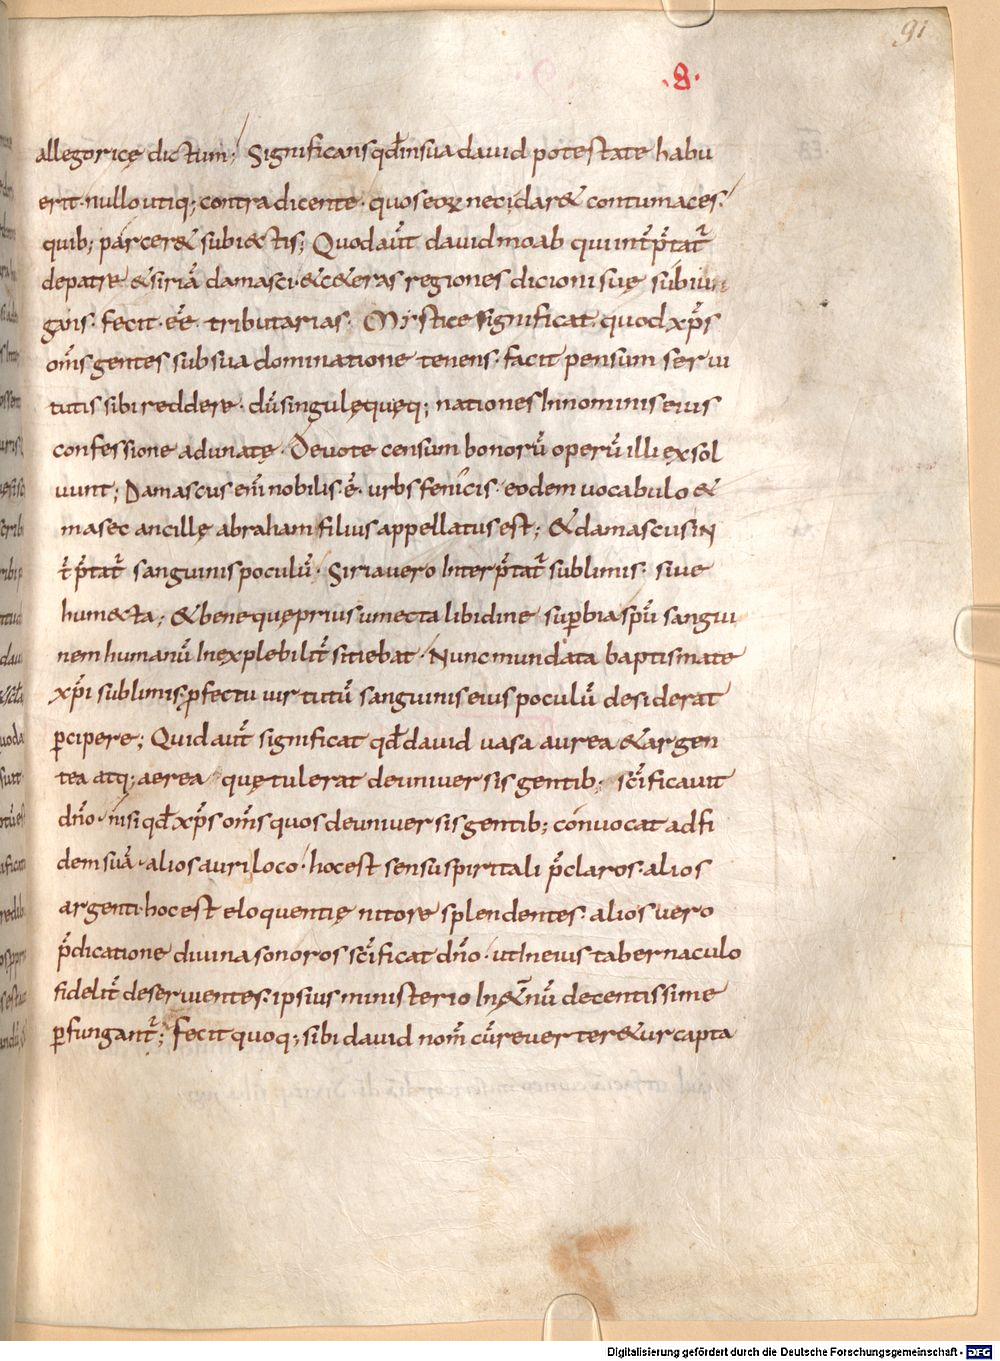 91
.8.
allegoricę dictum; Significans qđ in sua dauid potestate habu
erit. nullo utiq; contradicente. quos eoꝝ neci dar& contumaces.
quib; parcer& subiectis; Quod aūt dauid moab qui int̄p̄tat̄
de patre & siriā damasci. & c&eras regiones dicioni suę subiu
gans. fecit. eē. tributarias. Mystice significat. quod xp̄s
om̄s gentes sub sua dominatione tenens. facit pensum serui
tutis sibi reddere. dū singulę quęq; nationes In nominis eius
confessione adunatę. Deuote censum bonorū operū illi exsol
uunt; Damascus eni̅ nobilis. ē. urbs fenicis. eodem uocabulo &
masec ancillę abraham filius appellatus est; & damascus in
t̄p̄tat̄ sanguinis poculū. Siria uero Interp̄tat̄ sublimis. siue
hum&ta; & bene quę prius umecta libidine sup̱bia sp̄ū sangui
nem humanū Inexplebilit̄ sitiebat. Nunc mundata baptismate
xp̄i sublimis ꝓfectu uirtutū sanguinis eius poculū desiderat
ꝑcipere; Quid aūt significat qđ dauid uasa aurea & argen
tea atq; aerea quę tulerat de uniuersis gentib; sc̄ificauit
dn̄o. nisi qđ xp̄s om̄s quos de uniuersis gentib; conuocat ad fi
dem suā. alios auri loco. hoc est sensu spiritali p̄claros. alios
argenti. hoc est eloquentię nitore splendentes. alios uero
p̄dicatione diuina sonoros sc̄ificat dn̄o. ut In eius tabernaculo
fidelit̄ deseruientes. ipsius ministerio In &nū decentissime
ꝑfungant̄; Fecit quoq; sibi dauid nom̄ cū reuerter&ur capta
Digitalisierung gefördert durch die Deutsche Forschungsgemeinschaft - DFG